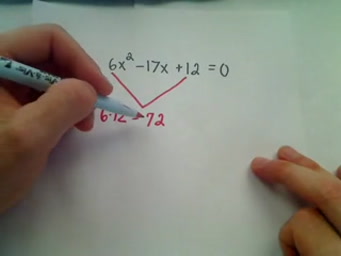 6x² -17x +12 = 0
6·12 72